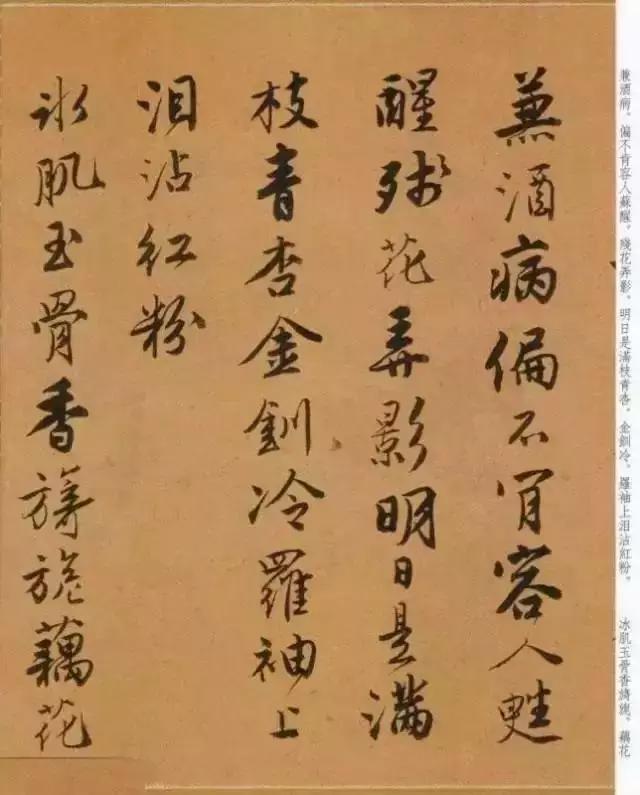 兼酒病偏不肯容人甦
醒殘花弄影明日是滿
枝青杏金釧冷羅袖上
泪沾紅粉
冰肌玉骨香旖旎藕花
兼酒病，偏不肯容人蘇醒。殘花弄影，明日是滿枝青杏。金釧冷，羅袖上泪沾紅粉。　冰肌玉骨香旖旎，藕花